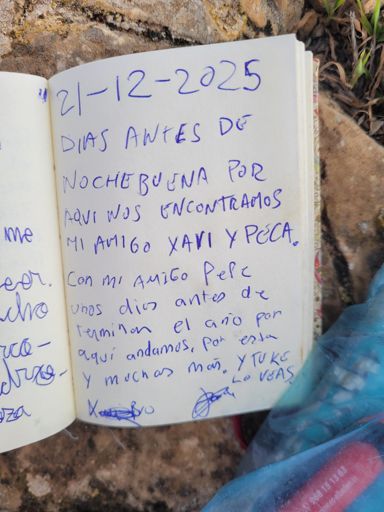 me
21-12-2025
DIAS ANTES DE
NOCHEBUENA POR
AQUI NOS ENCONTRAMOS
MI AMIGO XAVI Y PECA.
Con mi Amigo Pepe
unos dias antes de
terminar el año por
aquí andamos, por esta
y muchas más. Y TU KE
LO VEAS